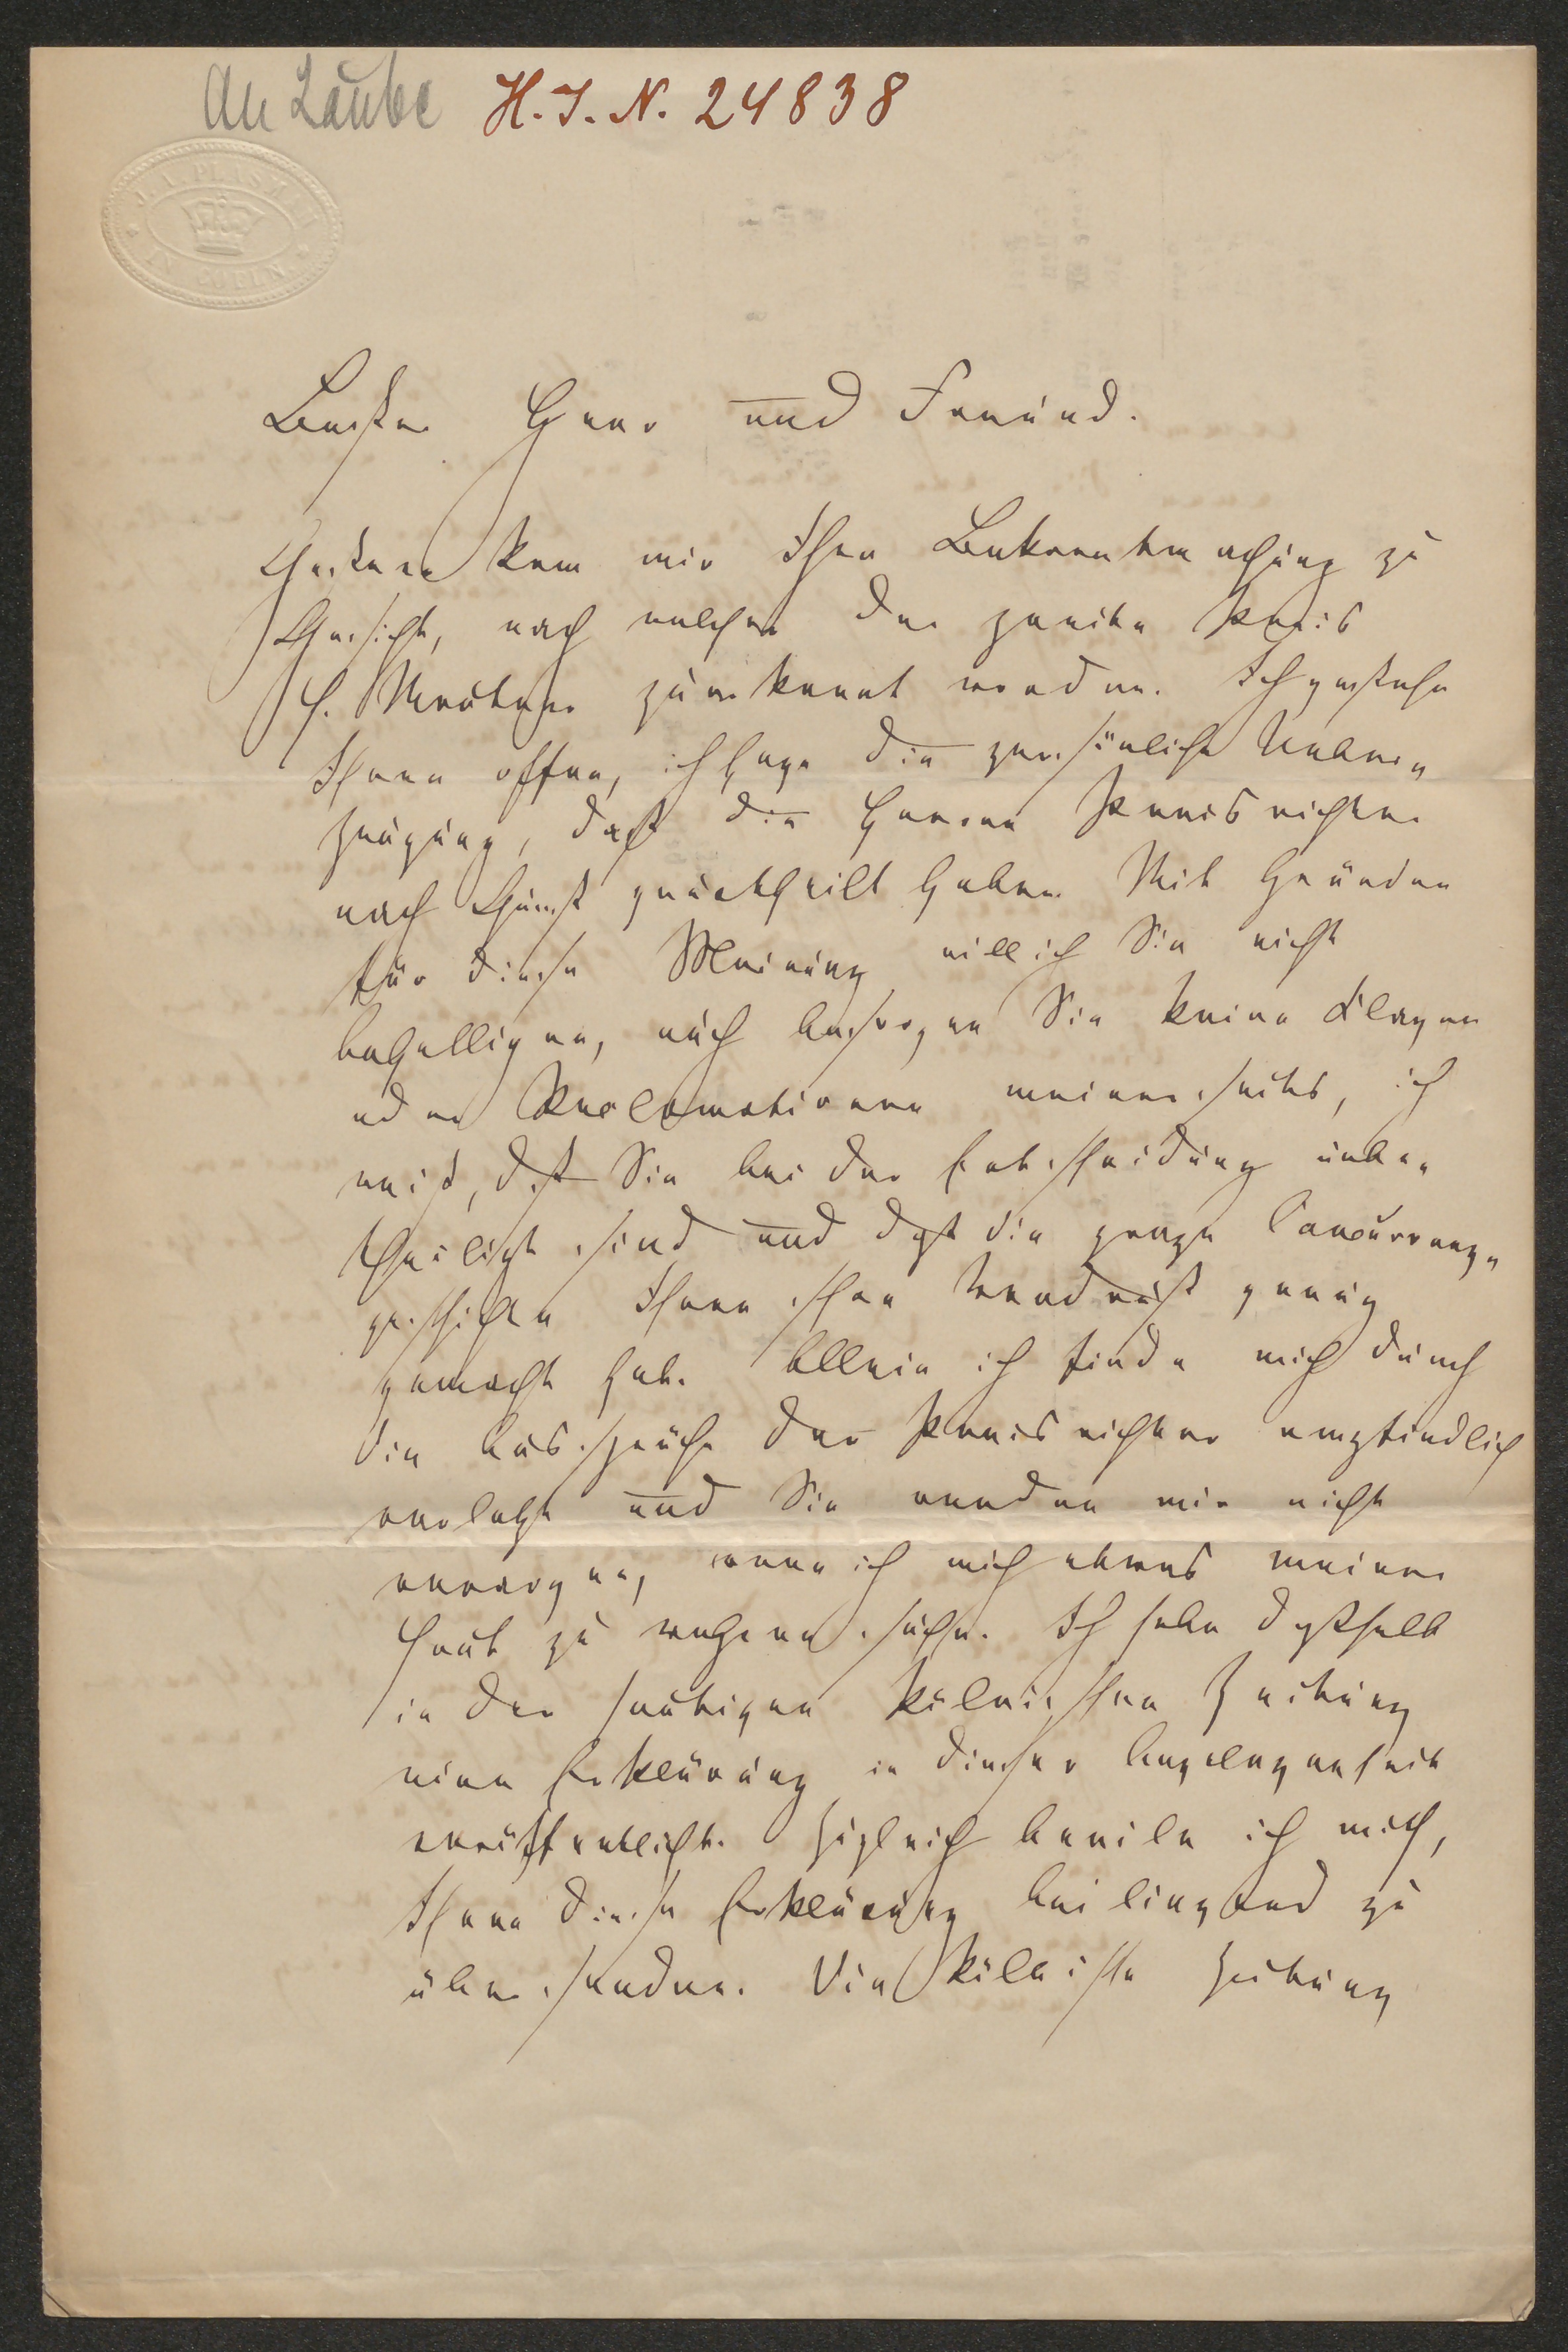 An Laube H. I. N. 24838
IN CÖLN
Bester Herr und Freund.
Gestern kam mir Ihre Bekanntmachung zu
Gesicht, nach welcher der zweite Preis
H. Mautner zuerkannt worden. Ich gestehe
Ihnen offen, ich hege die persönliche Ueber„
zeugung, daß die Herren Preisrichter
nach Gunst geurtheilt haben. Mit Gründen
für diese Meinung will ich Sie nicht
behelligen, auch besorgen Sie keine Klagen
oder Reclamationen meinerseits, ich
weiß, daß Sie bei der Entscheidung unbe„
theiligt sind und daß die ganze Concurrenz„
geschichte Ihnen schon Verdruß genug
gemacht hat. Allein ich finde mich durch
die Aussprüche der Preisrichter empfindlich
verletzt und Sie werden mir nicht
verargen, wenn ich mich etwas meiner
Haut zu wehren suche. Ich habe deßhalb
in der heutigen kölnischen Zeitung
eine Erklärung in dieser Angelegenheit
veröffentlicht. Zugleich beeile ich mich,
Ihnen diese Erklärung beiliegend zu
übersenden. Die kölnische Zeitung